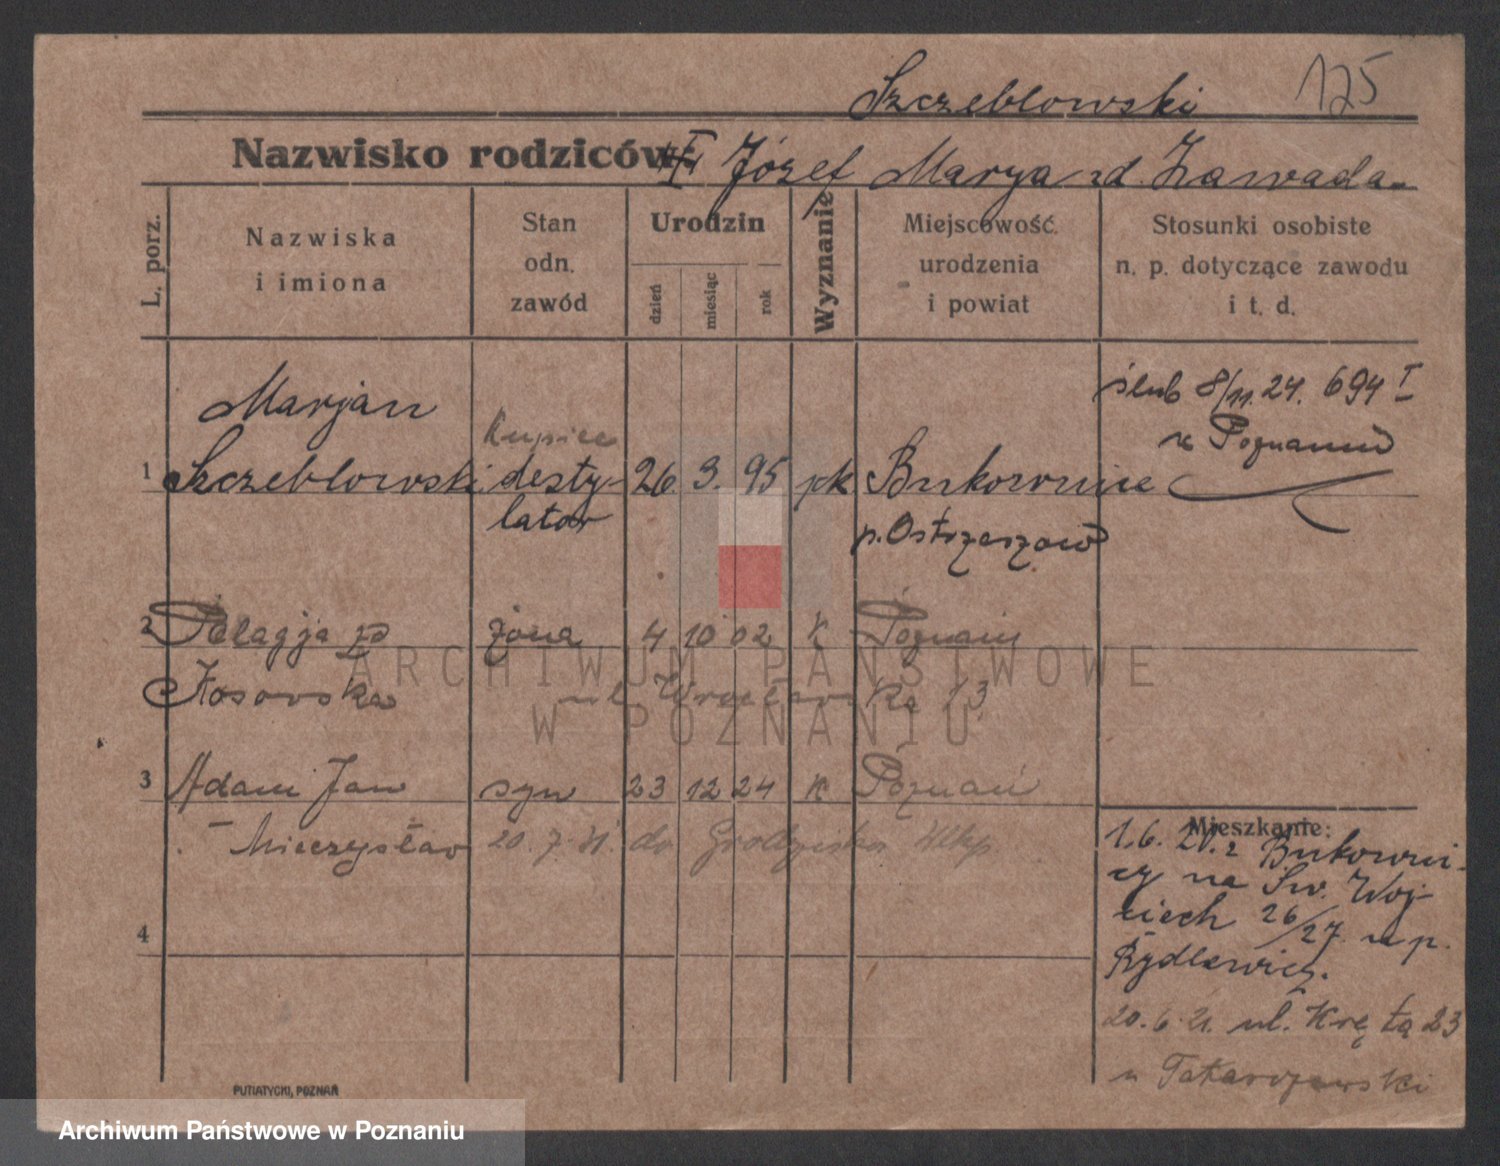 Szczeblowski 125
Nazwisko rodziców: Józef Marya zd. Zawada
L. porz.
Nazwiska
i imiona
Stan
odn.
zawód
Urodzin
dzień
miesiąc
rok
Wyznanie
Miejscowość
urodzenia
i powiat
Stosunki osobiste
n. p. dotyczące zawodu
i t. d.
ślub 8/11.24. 694 I
w Poznaniu
Marjan kupiec
1 Szczeblowski desty- 26. 3. 95 rk Bukownica
lator p. Ostrzeszów
2 Pelagja zd żona 4 10 02 k Poznań
Kosovska ul Wrocławska 13
3 Adam Jan syn 23 12 24 k Poznań
Mieczysław 20.7.31. do Grodziska Wlkp
4
Mieszkanie:
1.6.21. z Bukowni-
cy na Św. Woj-
ciech 26/27. u p.
Rydlewicz.
20.6.21. ul. Krę tą 23
u Tatarzewski
PUTIATYCKI, POZNAŃ
ARCHIWUM PAŃSTWOWE
W POZNANIU
Archiwum Państwowe w Poznaniu